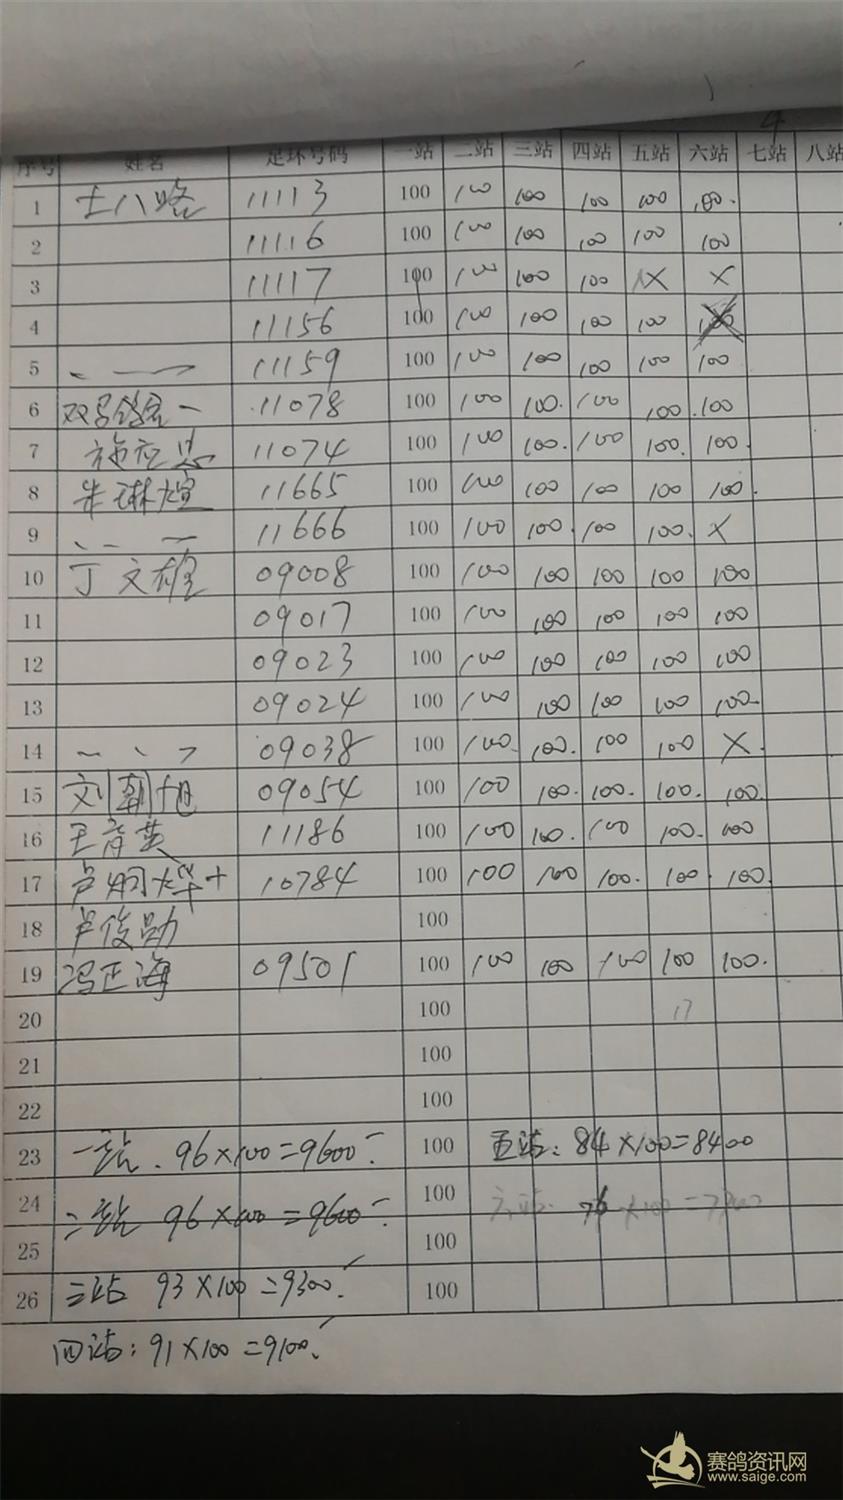 序号 姓名 足环号码 一站 二站 三站 四站 五站 六站 七站 八站
1 士八路 11113 100 100 100 100 100 100.
2 11116 100 100 100 100 100 100
3 11117 100 100 100 100 X X
4 11156 100 100 100 100 100
5 11159 100 100 100 100 100 100
6 11078 100 100 100. 100 100. 100
7 施应忠 11074 100 100 100. 100 100. 100.
8 朱琳煊 11665 100 100 100 100 100 100.
9 11666 100 100 100. 100 100. X
10 丁文雄 09008 100 100 100 100 100 100
11 09017 100 100 100 100 100 100
12 09023 100 100 100 100 100 100
13 09024 100 100 100 100 100 100.
14 09038 100 100. 100. 100 100 X.
15 刘朝旭 09054 100 100 100. 100. 100. 100.
16 王育英 11186 100 100 100. 100 100. 100
17 卢炯烨+ 10784 100 100 100 100. 100. 100.
18 卢俊勋 100
19 冯正海 09501 100 100 100 100 100 100.
20 100 17
21 100
22 100
23 一站. 96×100=9600 100 五站: 84×100=8400
24 二站 96×100=9600 100 六站. 76×100=7600
25 100
26 三站 93×100=9300 100
四站: 91×100=9100
赛鸽资讯网
www.saige.com